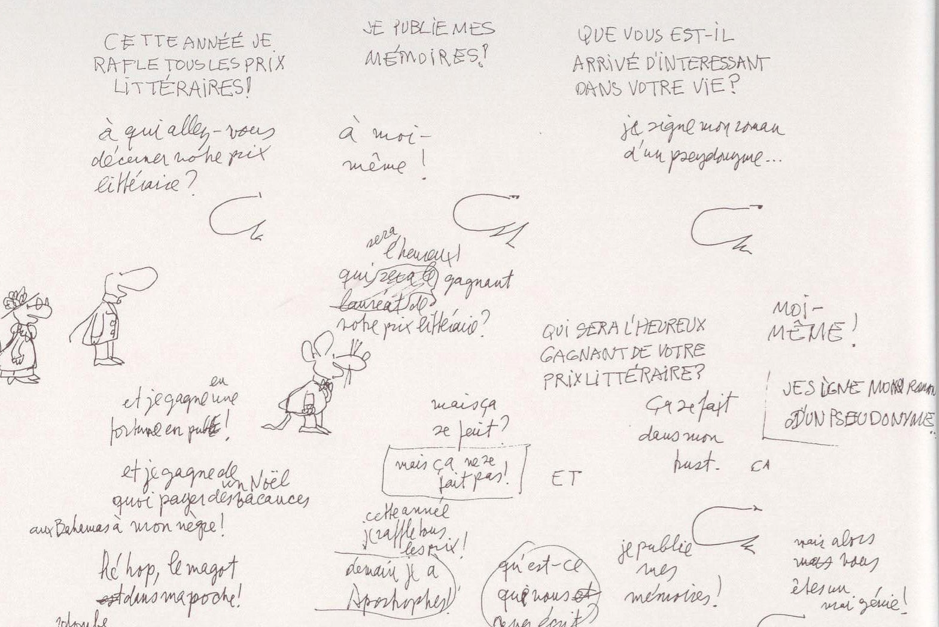 CETTE ANNÉÉ JE
RAFLE TOUS LES PRIX
LITTÉRAIRES!
JE PUBLIE MES
MÉMOIRES!
QUE VOUS EST-IL
ARRIVÉ D'INTERESSANT
DANS VOTRE VIE?
à qui allez-vous
décerner votre prix
littéraire?
à moi-
même!
je signe mon roman
d'un pseydonyme...
sera
l'heureux!
qui sera le gagnant
lauréat de
votre prix littéraire?
QUI SERA L'HEUREUX
GAGNANT DE VOTRE
PRIX LITTÉRAIRE?
MOI-
MÊME!
JE SIGNE MON ROMAN
D'UN PSEUDONYME..
en
et je gagne une
fortune en pub!
et je gagne de
un Noël
quoi payer des vacances
aux Bahemas à mon nègre!
Hé hop, le magot
est dans ma poche!
mais ça
se fait?
mais ça ne se
fait pas!
ET
cette année
je raffle tous
les prix!
demain je a
Apostrophes!
Ça se fait
dans mon
CA
qu'est-ce
que vous
je publie
mes
mémoires!
mais alors
mais vous
êtes un
vrai génie!